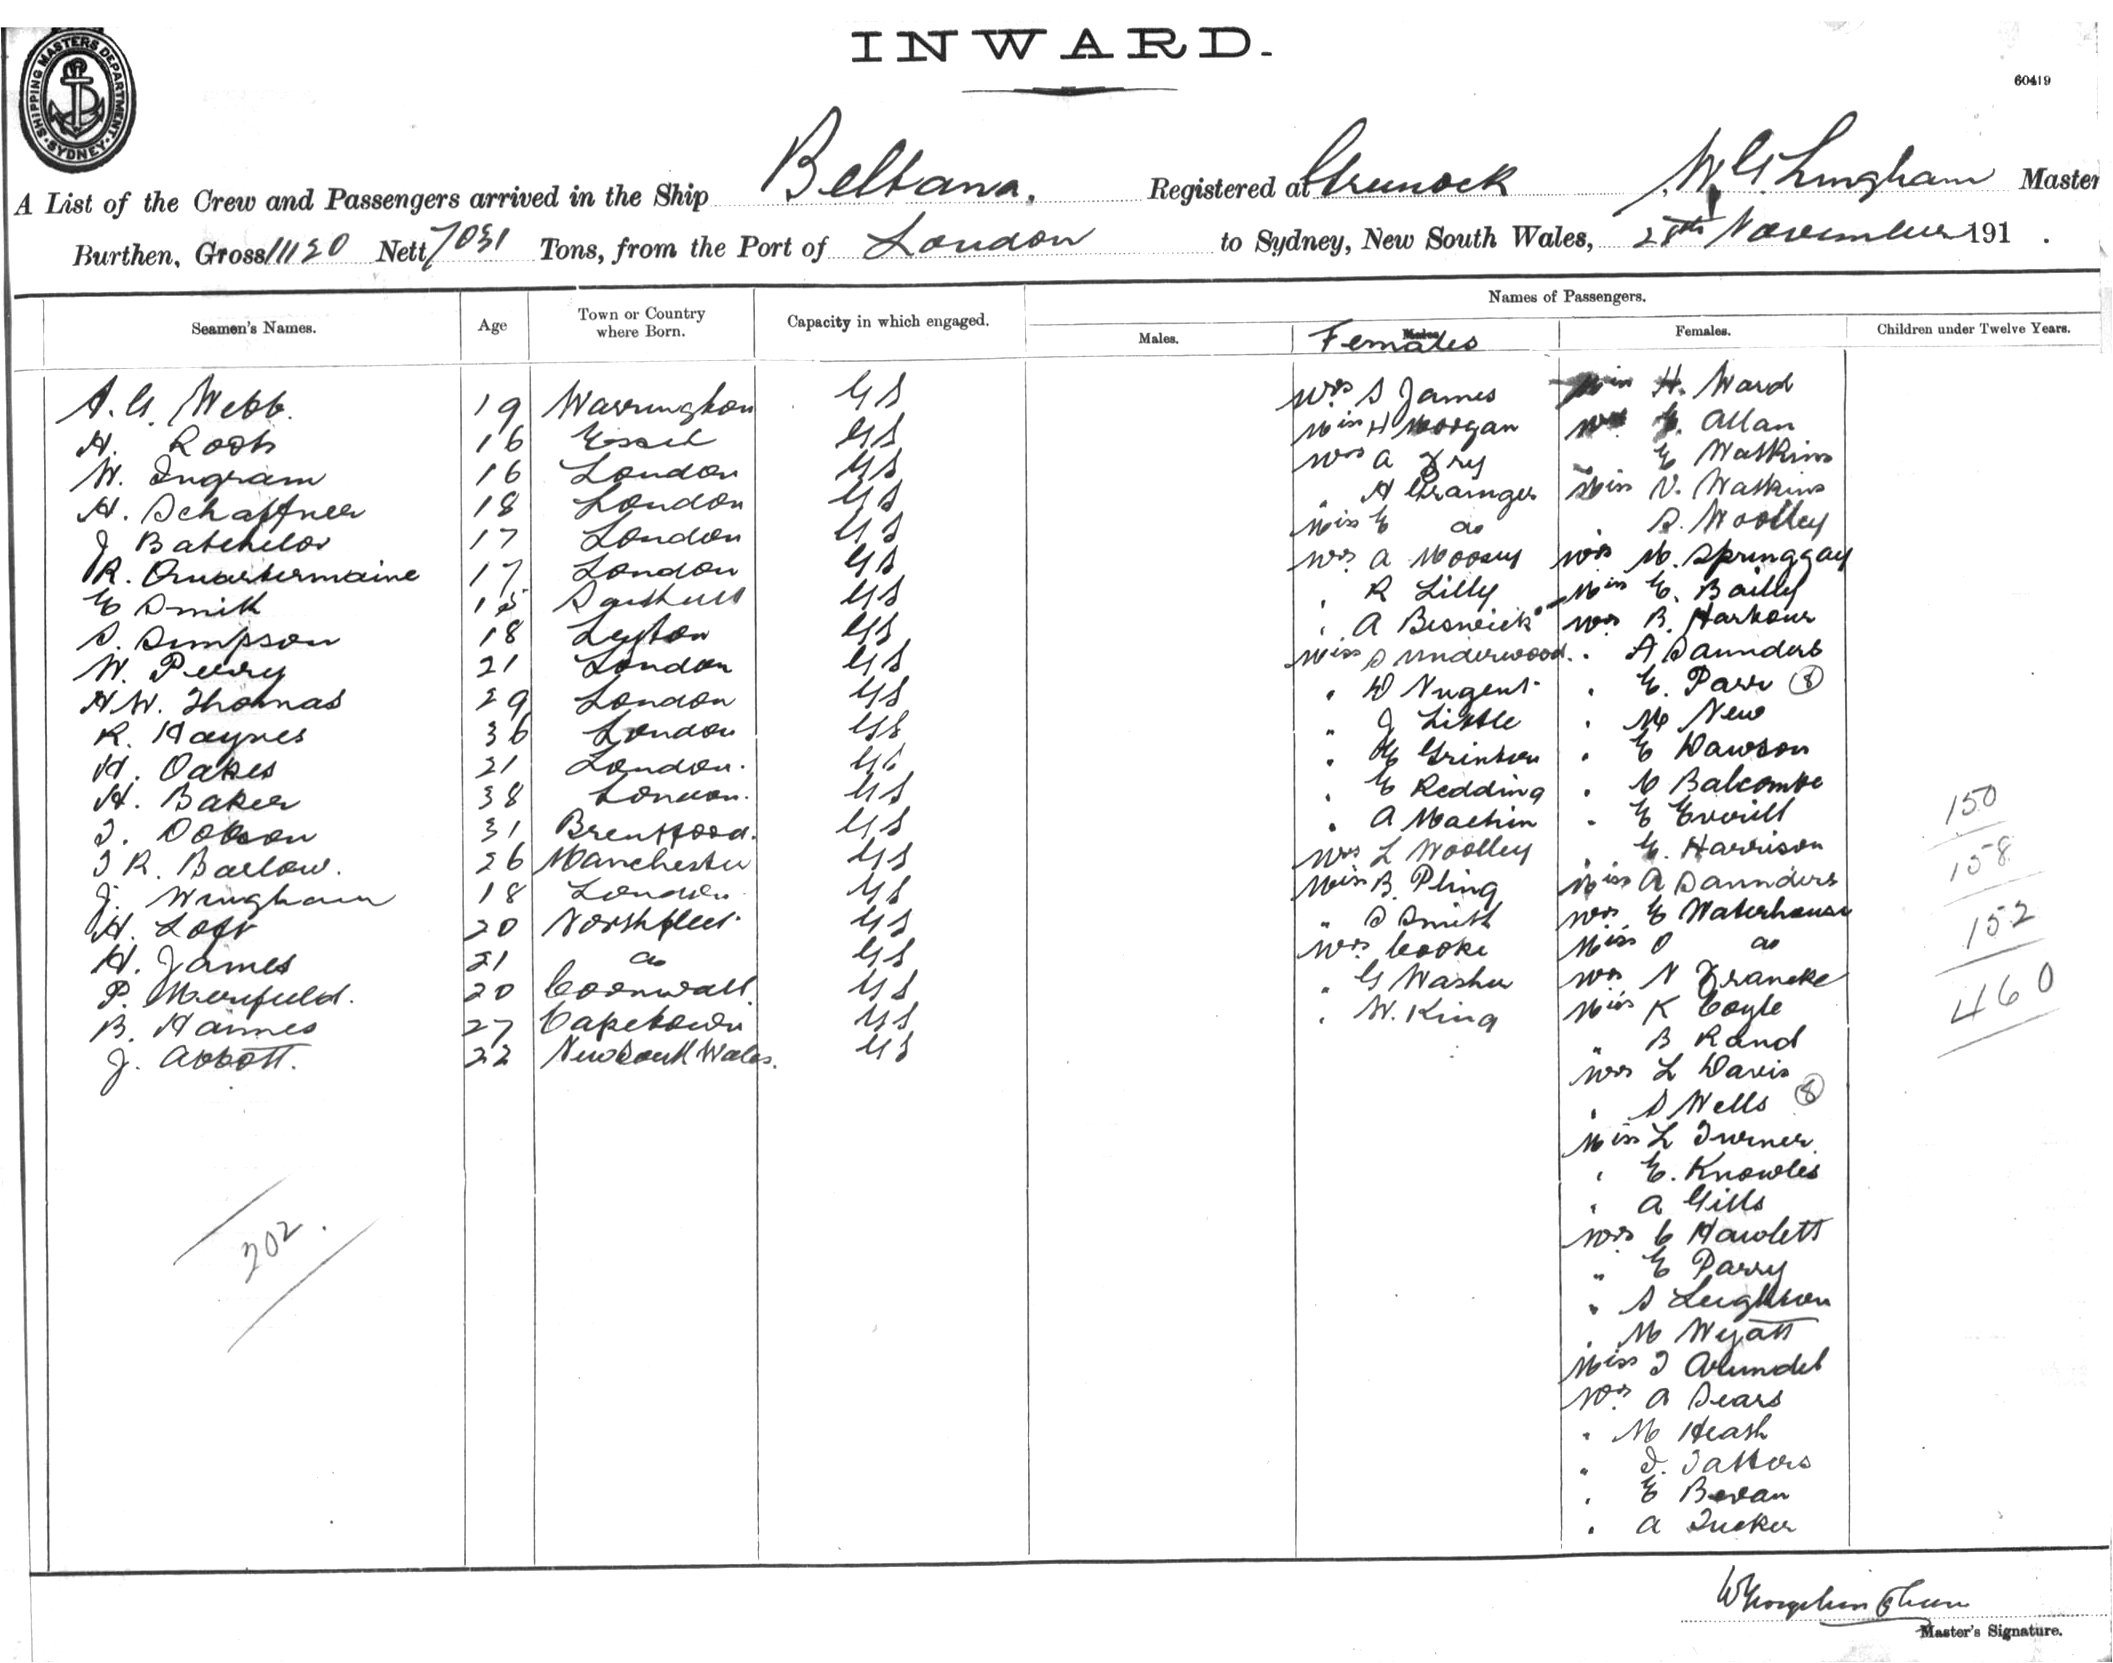 INWARD.
SHIPPING MASTERS DEPARTMENT SYDNEY
60419
A List of the Crew and Passengers arrived in the Ship Beltana, Registered at Greenock W. G. Lingham Master
Burthen, Gross 11120 Nett 7031 Tons, from the Port of London to Sydney, New South Wales, 28th November 191 .
Names of Passengers.
Seamen's Names. Age Town or Country where Born. Capacity in which engaged. Males. Females Females. Children under Twelve Years.
A. G. Webb. 19 Warrington GS Mrs S James Miss H. Ward
H. 16 Essex GS Miss H Morgan Mrs E. Allan
W. Ingram 16 London GS Mrs A Fry E Watkins
H. Schaffner 18 London GS " H Grainger Miss V. Watkins
J Batchelor 17 London GS Miss E do " S. Woolley
R. Quartermaine 17 London GS Mrs A Mrs M. Springgay
E Smith 15 GS " R Lilly Miss E. Bailly
S. Simpson 18 Leyton GS " A Beswick Mrs B. Harbour
W. Perry 21 London GS Miss S Underwood. " A Saunders
H W. Thomas 29 London GS " D Nugent " E. Parr 8
R. Haynes 36 London GS " J Little " M New
H. Oakes 21 London. GS " E Dawson
H. Baker 38 London. GS " E Redding " Balcombe
T. Dobson 31 Brentford. GS " A Machin " E Everill
T R. Barlow. 26 Manchester GS Mrs L Woolley " E. Harrison
J. Wingham 18 London GS Miss B. Pling Miss A Saunders
H. Loft 20 Northfleet GS " S Smith Mrs E Waterhouse
H. James 21 do GS Mrs Cooke Miss O do
P. Merifield. 20 Cornwall GS " G Washer Mrs N Francke
B. Haines 27 Capetown GS " W. King Miss K Coyle
J. Abbott. 22 New South Wales. GS " B Rand
Mrs L Davis
" S Wells 8
Miss L Turner
" E. Knowles
" A Gills
Mrs C Hawlett
" E Parry
" S Leighton
" M Wyatt
Miss I Arundel
Mrs A Sears
" M Heath
" J. Tattors
" E Bevan
" A Tucker
150
158
152
460
202.
Master's Signature.